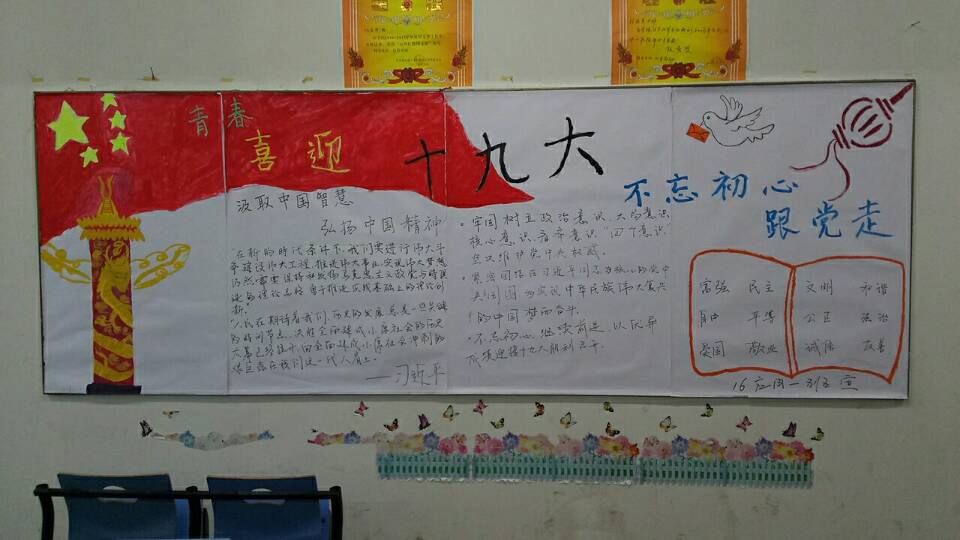 青春
喜迎
十九大
汲取中国智慧
弘扬中国精神
"在新的时代条件下,我们要进行伟大斗
争建设伟大工程,推进伟大事业,实现伟大梦想
仍然需要保持和发扬马克思主义政党与时俱
进的理论品格,勇于推进实践基础上的理论创
新。"
的时间节点,决胜全面建成小康社会的历史
大幕已经拉开,向全面建成小康社会冲刺的
——习近平
·牢固树立政治意识、大局意识
核心意识、看齐意识"四个意识"
坚决维护党中央权威。
·紧密团结在习近平同志为核心的党中
央周围 为实现中华民族伟大复兴
的中国梦而奋斗。
·不忘初心,继续前进,以优异
成绩迎接十九大胜利召开。
不忘初心
跟党走
富强 民主 文明 和谐
自由 平等 公正 法治
爱国 敬业 诚信 友善
16应用一班 宣